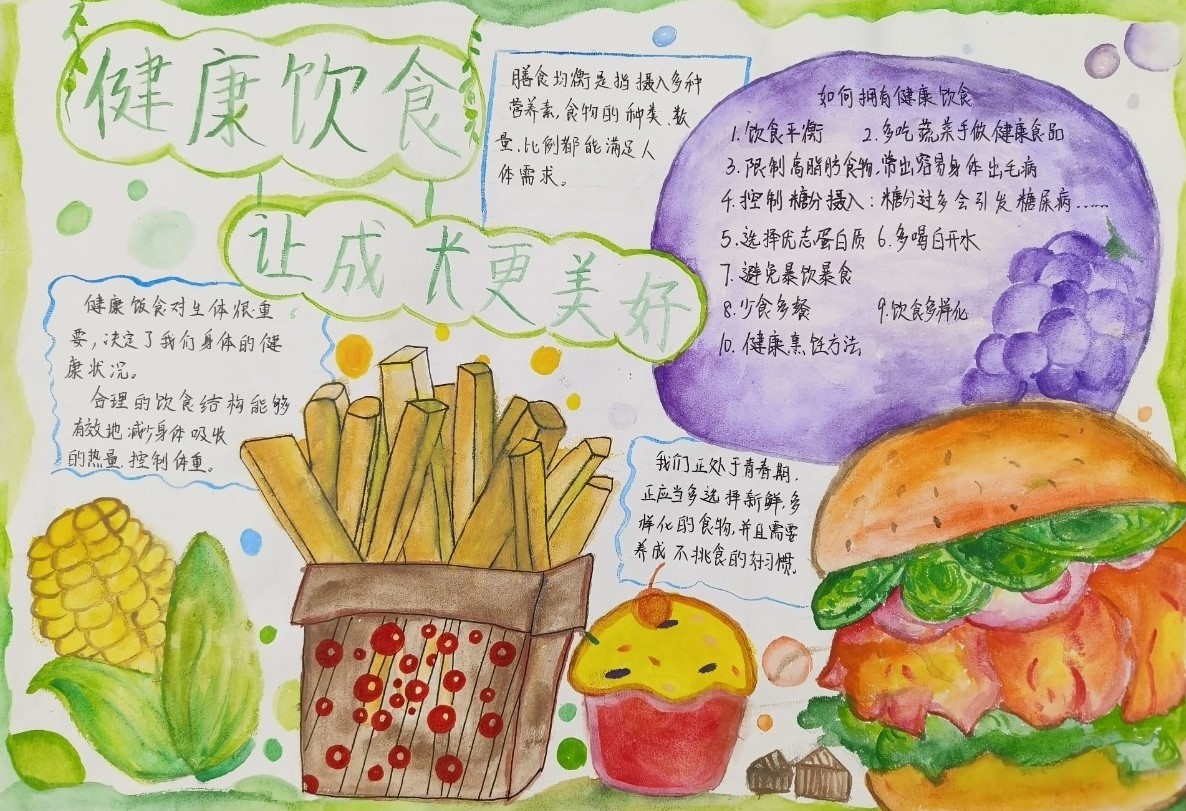 健康饮食
让成长更美好
膳食均衡是指摄入多种
营养素,食物的种类、数
量、比例都能满足人
体需求。
如何拥有健康饮食
1.饮食平衡 2.多吃蔬菜手做健康食品
3.限制高脂肪食物,常出容易身体出毛病
4.控制糖分摄入:糖分过多会引发糖尿病……
5.选择优态蛋白质 6.多喝白开水
7.避免暴饮暴食
8.少食多餐 9.饮食多样化
10.健康烹饪方法
健康饭食对生体很重
要,决定了我们身体的健
康状况。
合理的饮食结构能够
有效地减少身体吸收
的热量,控制体重。
我们正处于青春期,
正应当多选择新鲜,多
样化的食物,并且需要
养成不挑食的好习惯。